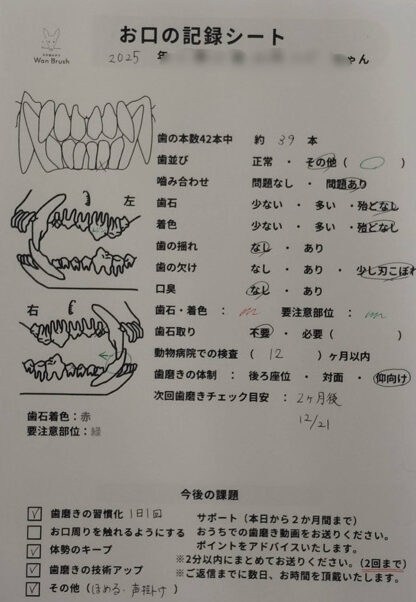 お口の記録シート
Wan Brush
2025 年
ゃん
歯の本数42本中 約 39 本
歯並び 正常 ・ その他（ ）
噛み合わせ 問題なし ・ 問題あり
左
歯石 少ない ・ 多い ・殆どなし
着色 少ない ・ 多い ・殆どなし
歯の揺れ なし ・ あり
歯の欠け なし ・ あり ・ 少し刃こぼれ
口臭 なし ・ あり
右
歯石・着色 ： 要注意部位 ：
歯石取り 不要 ・ 必要（ ）
動物病院での検査 （ 12 ）ヶ月以内
歯磨きの体制 ： 後ろ座位 ・ 対面 ・ 仰向け
次回歯磨きチェック目安 ： 2ヶ月後
12/21
歯石着色：赤
要注意部位：緑
今後の課題
歯磨きの習慣化 1日1回
お口周りを触れるようにする
体勢のキープ
歯磨きの技術アップ
その他（ほめる・声掛け）
サポート（本日から２か月間まで）
おうちでの歯磨き動画をお送りください。
ポイントをアドバイスいたします。
※2分以内にまとめてお送りください。（2回まで）
※ご返信までに数日、お時間を頂戴いたします。